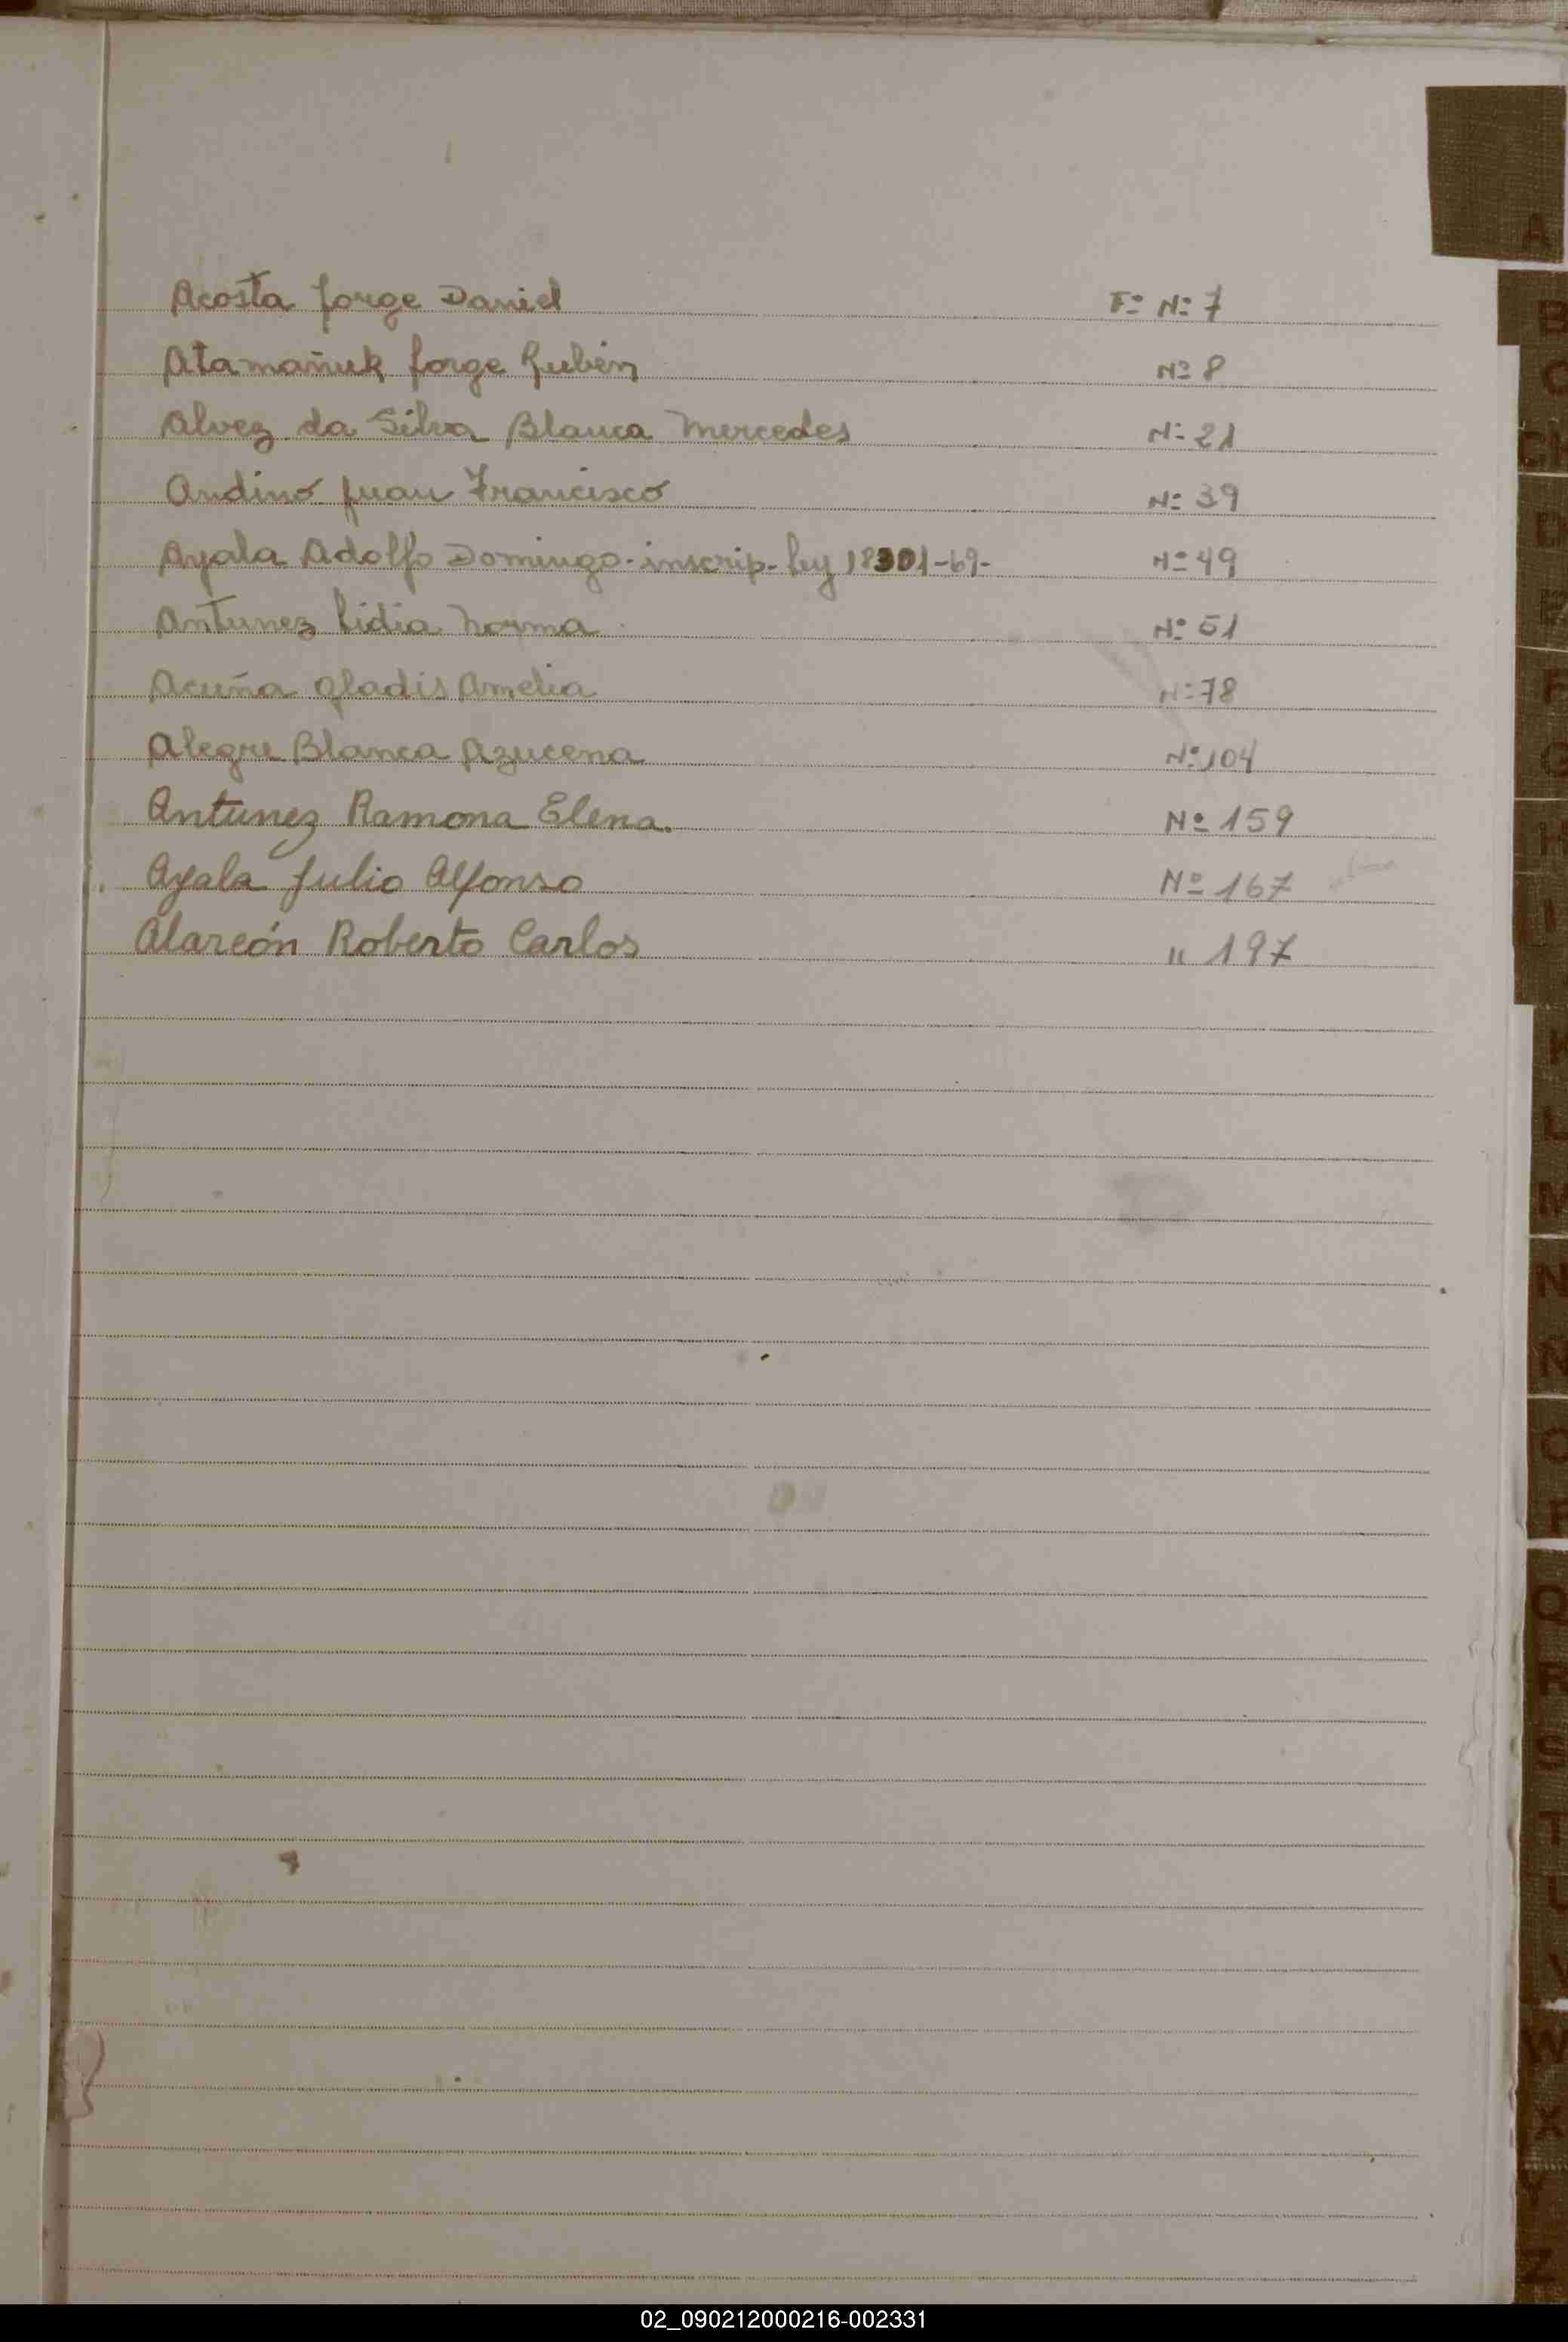 A
Acosta Jorge Daniel F: Nº 7
B
Atamañuk Jorge Rubén Nº 8
C
Alvez da Silva Blanca Mercedes Nº 21
Andino Juan Francisco Nº 39
Ayala Adolfo Domingo - inscrip - ley 18301-69- Nº 49
Antunez Lidia Norma Nº 51
Acuña Gladis Amelia Nº 78
F
Alegre Blanca Azucena Nº 104
G
Antunez Ramona Elena. Nº 159
H
Ayala Julio Alfonso Nº 167
I
Alarcón Roberto Carlos " 197
K
L
M
N
Ñ
O
P
Q
R
S
T
U
V
W
X
Y
Z
02_090212000216-002331